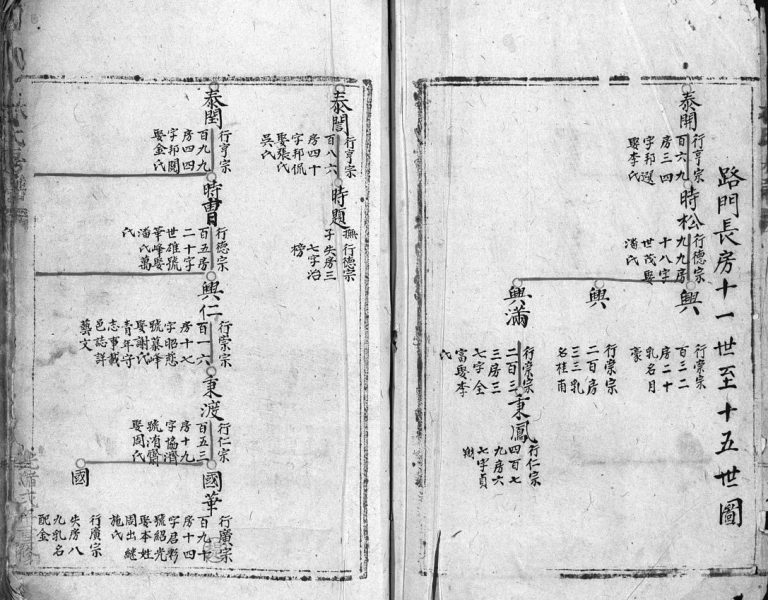 路門長房十一世至十五世圖
泰開
行亨宗
百六九
房三四
字邦選
娶李氏
時松
行德宗
九九房
十八字
世茂娶
潘氏
興
行崇宗
百三二
房二十
乳名月
豪
興
行崇宗
二百房
三三乳
名桂甫
興滿
行崇宗
二百三
三房三
七字全
富娶李
氏
秉鳳
行仁宗
四百七
九房六
七字貞
泰誾
行亨宗
百八六
房四十
字邦侃
娶張氏
吳氏
時題
行德宗
失房三
七字治
榜
撫
子
泰閏
行亨宗
百九九
房四四
字邦聞
娶金氏
時書
行德宗
百五房
二十字
世雄號
華峰娶
潘氏萬
氏
興仁
行崇宗
百一六
房十七
字昭慈
號慕峰
娶謝氏
青年守
志事載
邑誌詳
藝文
秉渡
行仁宗
百五三
房十九
字協濟
號洧賢
娶周氏
國華
行廣宗
百九十
房十四
字君彩
號紹光
娶本姓
周出繼
施氏
國
行廣宗
失房八
九乳名
配金